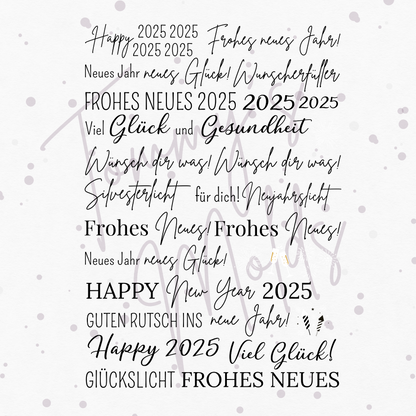 Happy 2025 2025 Frohes neues Jahr!
2025 2025
Neues Jahr neues Glück! Wunscherfüller
FROHES NEUES 2025 2025 2025
Viel Glück und Gesundheit
Wünsch dir was! Wünsch dir was!
Silvesterlicht für dich! Neujahrslicht
Frohes Neues! Frohes Neues!
Neues Jahr neues Glück!
HAPPY New Year 2025
GUTEN RUTSCH INS neue Jahr!
Happy 2025 Viel Glück!
GLÜCKSLICHT FROHES NEUES